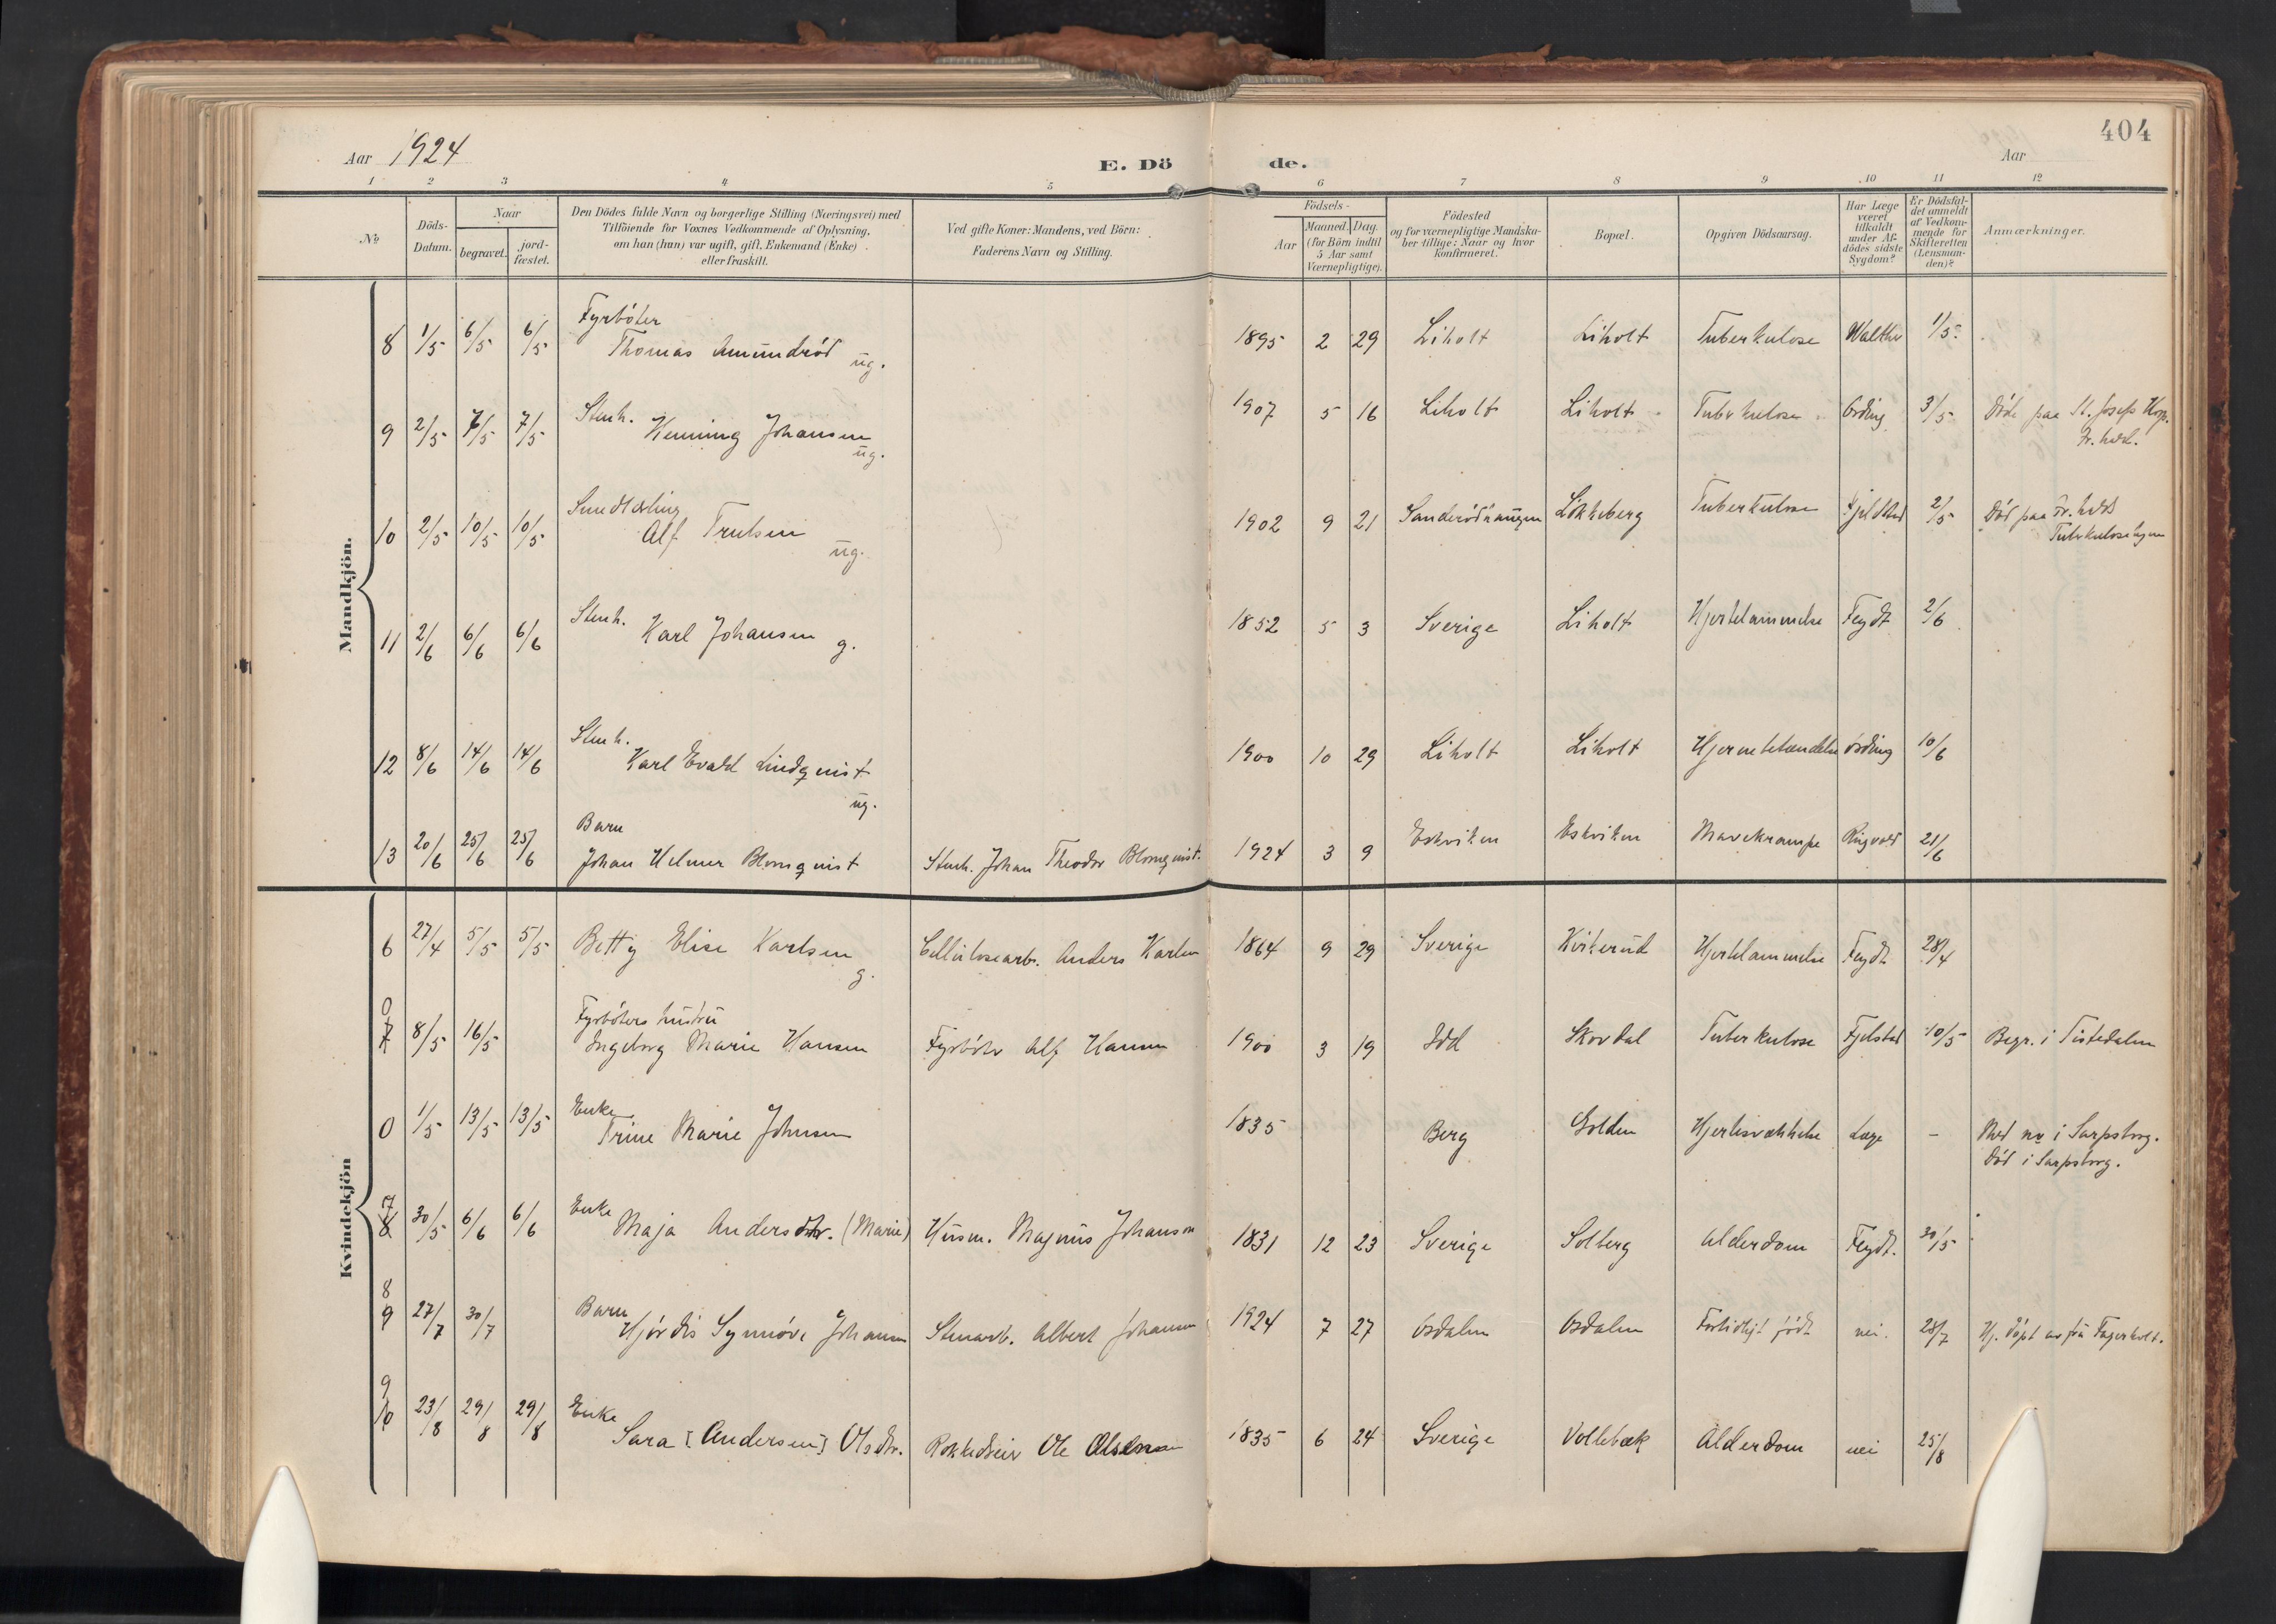 404
Aar 1924
E. Dö de.
Aar
1 2 3 4 5 6 7 8 9 10 11 12
No
Döds-
Datum.
Naar
begravet.
jord-
fæstet.
Den Dödes fulde Navn og borgerlige Stilling (Næringsvei) med
Tilföiende for Voxnes Vedkommende af Oplysning,
om han (hun) var ugift, gift, Enkemand (Enke)
eller fraskilt.
Ved gifte Koner: Mandens, ved Börn:
Faderens Navn og Stilling.
Födsels-
Aar
Maaned. Dag.
(for Börn indtil
5 Aar samt
Værnepligtige).
Födested
og for værnepligtige Mandska-
ber tillige: Naar og hvor
konfirmeret.
Bopæl.
Opgiven Dödsaarsag.
Har Læge
været
tilkaldt
under Af-
dödes sidste
Sygdom?
Er Dödsfal-
det anmeldt
af Vedkom-
mende for
Skifteretten
(Lensman-
den)?
Anmærkninger.
Mandkjön.
Fyrböter
8 1/5 6/5 6/5 Thomas Amundröd ug. 1895 2 29 Liholt Liholt Tuberkulose Walther 1/5
Stenh.
9 2/5 7/5 7/5 Henning Johansen ug. 1907 5 16 Liholt Liholt Tuberkulose Ording 3/5 Döde paa St. Josefs Hosp.
Fr.hald.
10 2/5 10/5 10/5 Alf Trulsen ug. 1902 9 21 Sanderödhaugen Lökkeberg Tuberkulose Fjeldstad 2/5 Död paa Fr.halds
Tuberkulosehjem
Stenh.
11 2/6 6/6 6/6 Karl Johansen g. 1852 5 3 Sverige Liholt Hjertelammelse Feydt 2/6
Stenh.
12 8/6 14/6 14/6 Karl Evald Lindqvist ug. 1900 10 29 Liholt Liholt Hjernebetændelse Ording 10/6
Barn
13 20/6 25/6 25/6 Johan Helmer Blomqvist Stenh. Johan Theodor Blomqvist. 1924 3 9 Eskviken Eskviken Mavekrampe Ringvold 21/6
Kvindekjön
6 27/4 5/5 5/5 Betty Elise Karlsen g. Cellulosearb. Anders Karlsen 1864 9 29 Sverige Kirkerud Hjertelammelse Feydt 28/4
Fyrböters hustru
0 7 8/5 16/5 Ingeborg Marie Hansen Fyrböter Alf Hansen 1900 3 19 Idd Skovdal Tuberkulose Fjelstad 10/5 Begr. i Tistedalen
Enke
0 1/5 13/5 13/5 Trine Marie Johnsen 1835 Berg Golden Hjertesvækkelse Læge - Med no i Sarpsborg.
Död i Sarpsborg.
Enke
7 8 30/5 6/6 6/6 Maja Andersdtr. (Marie) Husm. Magnus Johanson 1831 12 23 Sverige Solberg Alderdom Feydt. 30/5
Barn
8 9 27/7 30/7 Hjördis Synnöve Johansen Stenarb. Albert Johansen 1924 7 27 Osdalen Osdalen Fortidligt födt nei. 28/7 Hj. döpt av fru Fagerholt.
Enke
9 10 23/8 29/8 29/8 Sara [Andersen] Olsdtr. Ole Olsen 1835 6 24 Sverige Vollebæk Alderdom nei 25/8